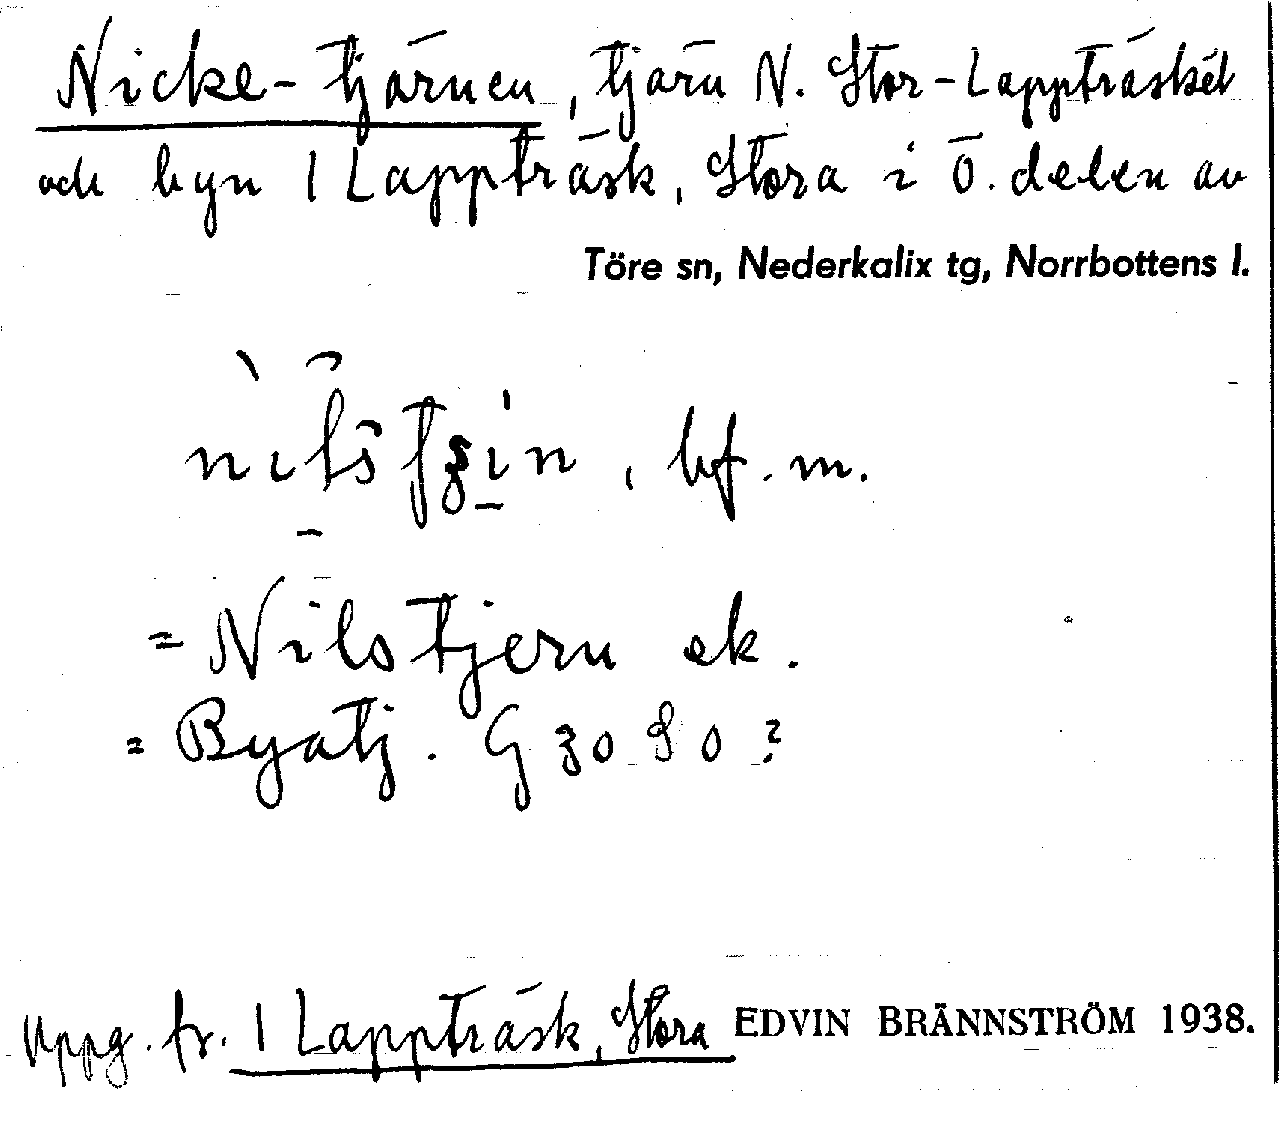 Nicke-tjärnen, tjärn N. Stor-Lappträsket
och byn 1 Lappträsk, Stora i Ö. delen av
Töre sn, Nederkalix tg, Norrbottens l.
, bf. m.
= Nilstjern ek.
= Byatj. G 3080?
Uppg. fr. 1 Lappträsk, Stora EDVIN BRÄNNSTRÖM 1938.